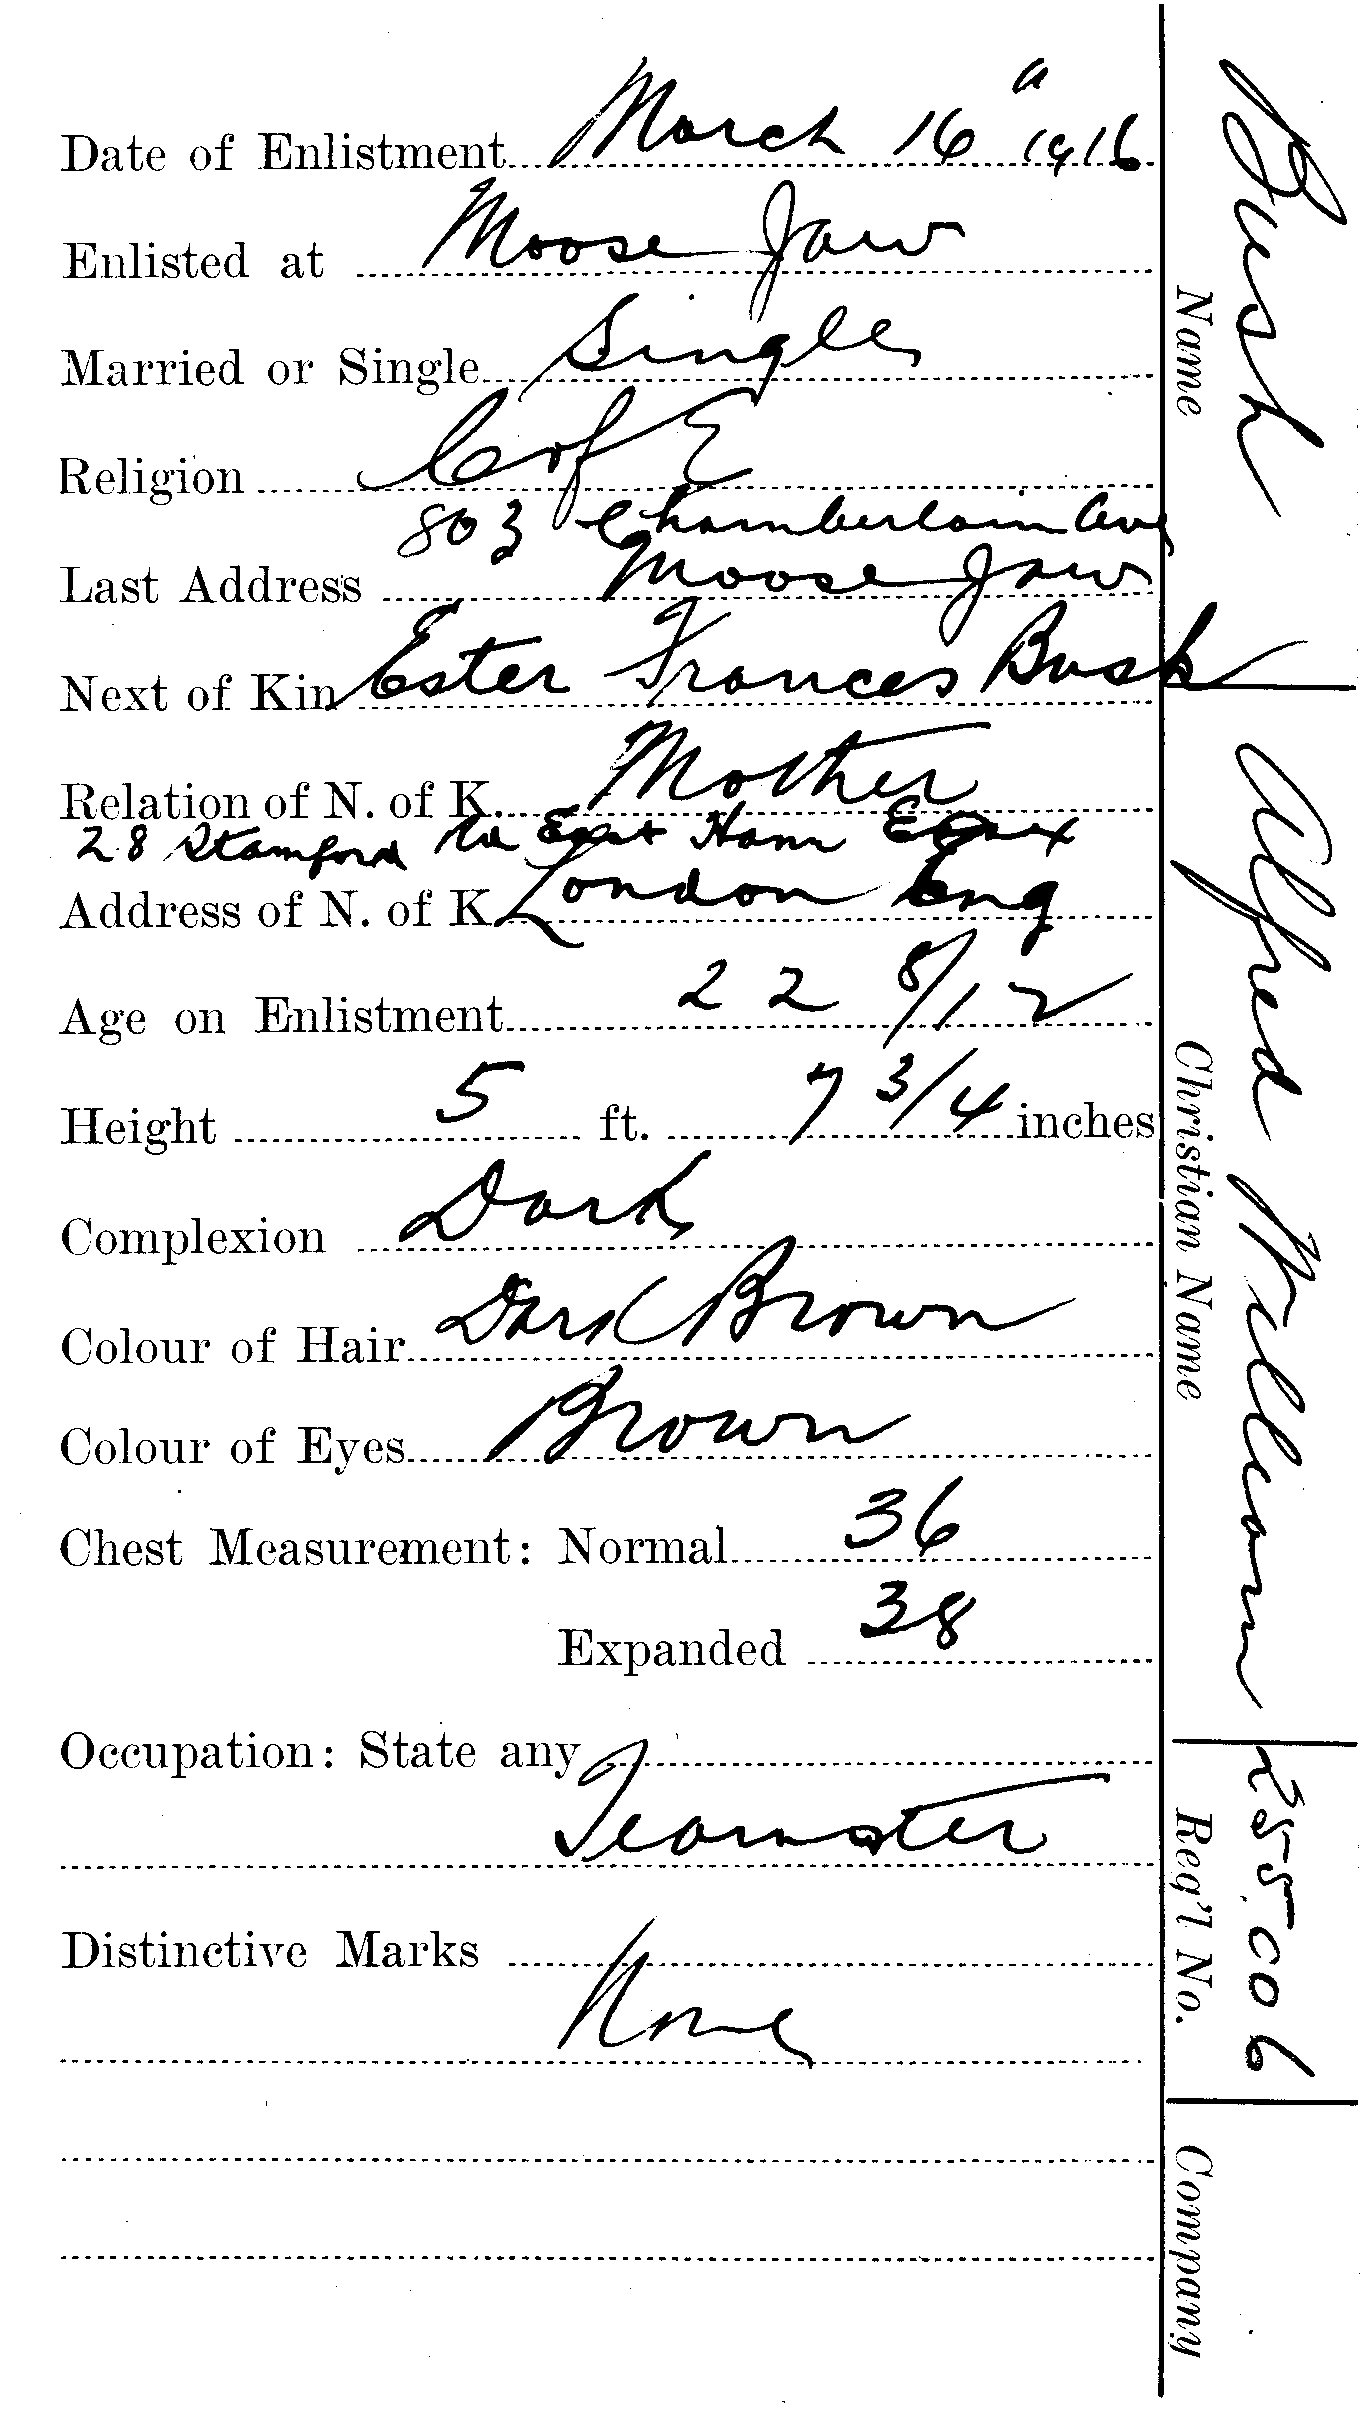 Date of Enlistment March 16 " 1916
Enlisted at Moose Jaw
Married or Single Single
Religion C of E
803 Chamberlain Ave
Last Address Moose Jaw
Next of Kin Ester Frances Bush
Relation of N. of K. Mother
28 Stamford Rd East Ham Essex
Address of N. of K. London Eng
Age on Enlistment 22 8/12
Height 5 ft. 7 3/4 inches
Complexion Dark
Colour of Hair Dark Brown
Colour of Eyes Brown
Chest Measurement: Normal 36
Expanded 38
Occupation: State any
Teamster
Distinctive Marks
None
Bush
Name
Alfred William
Christian Name
255006
Reg'l No.
Company